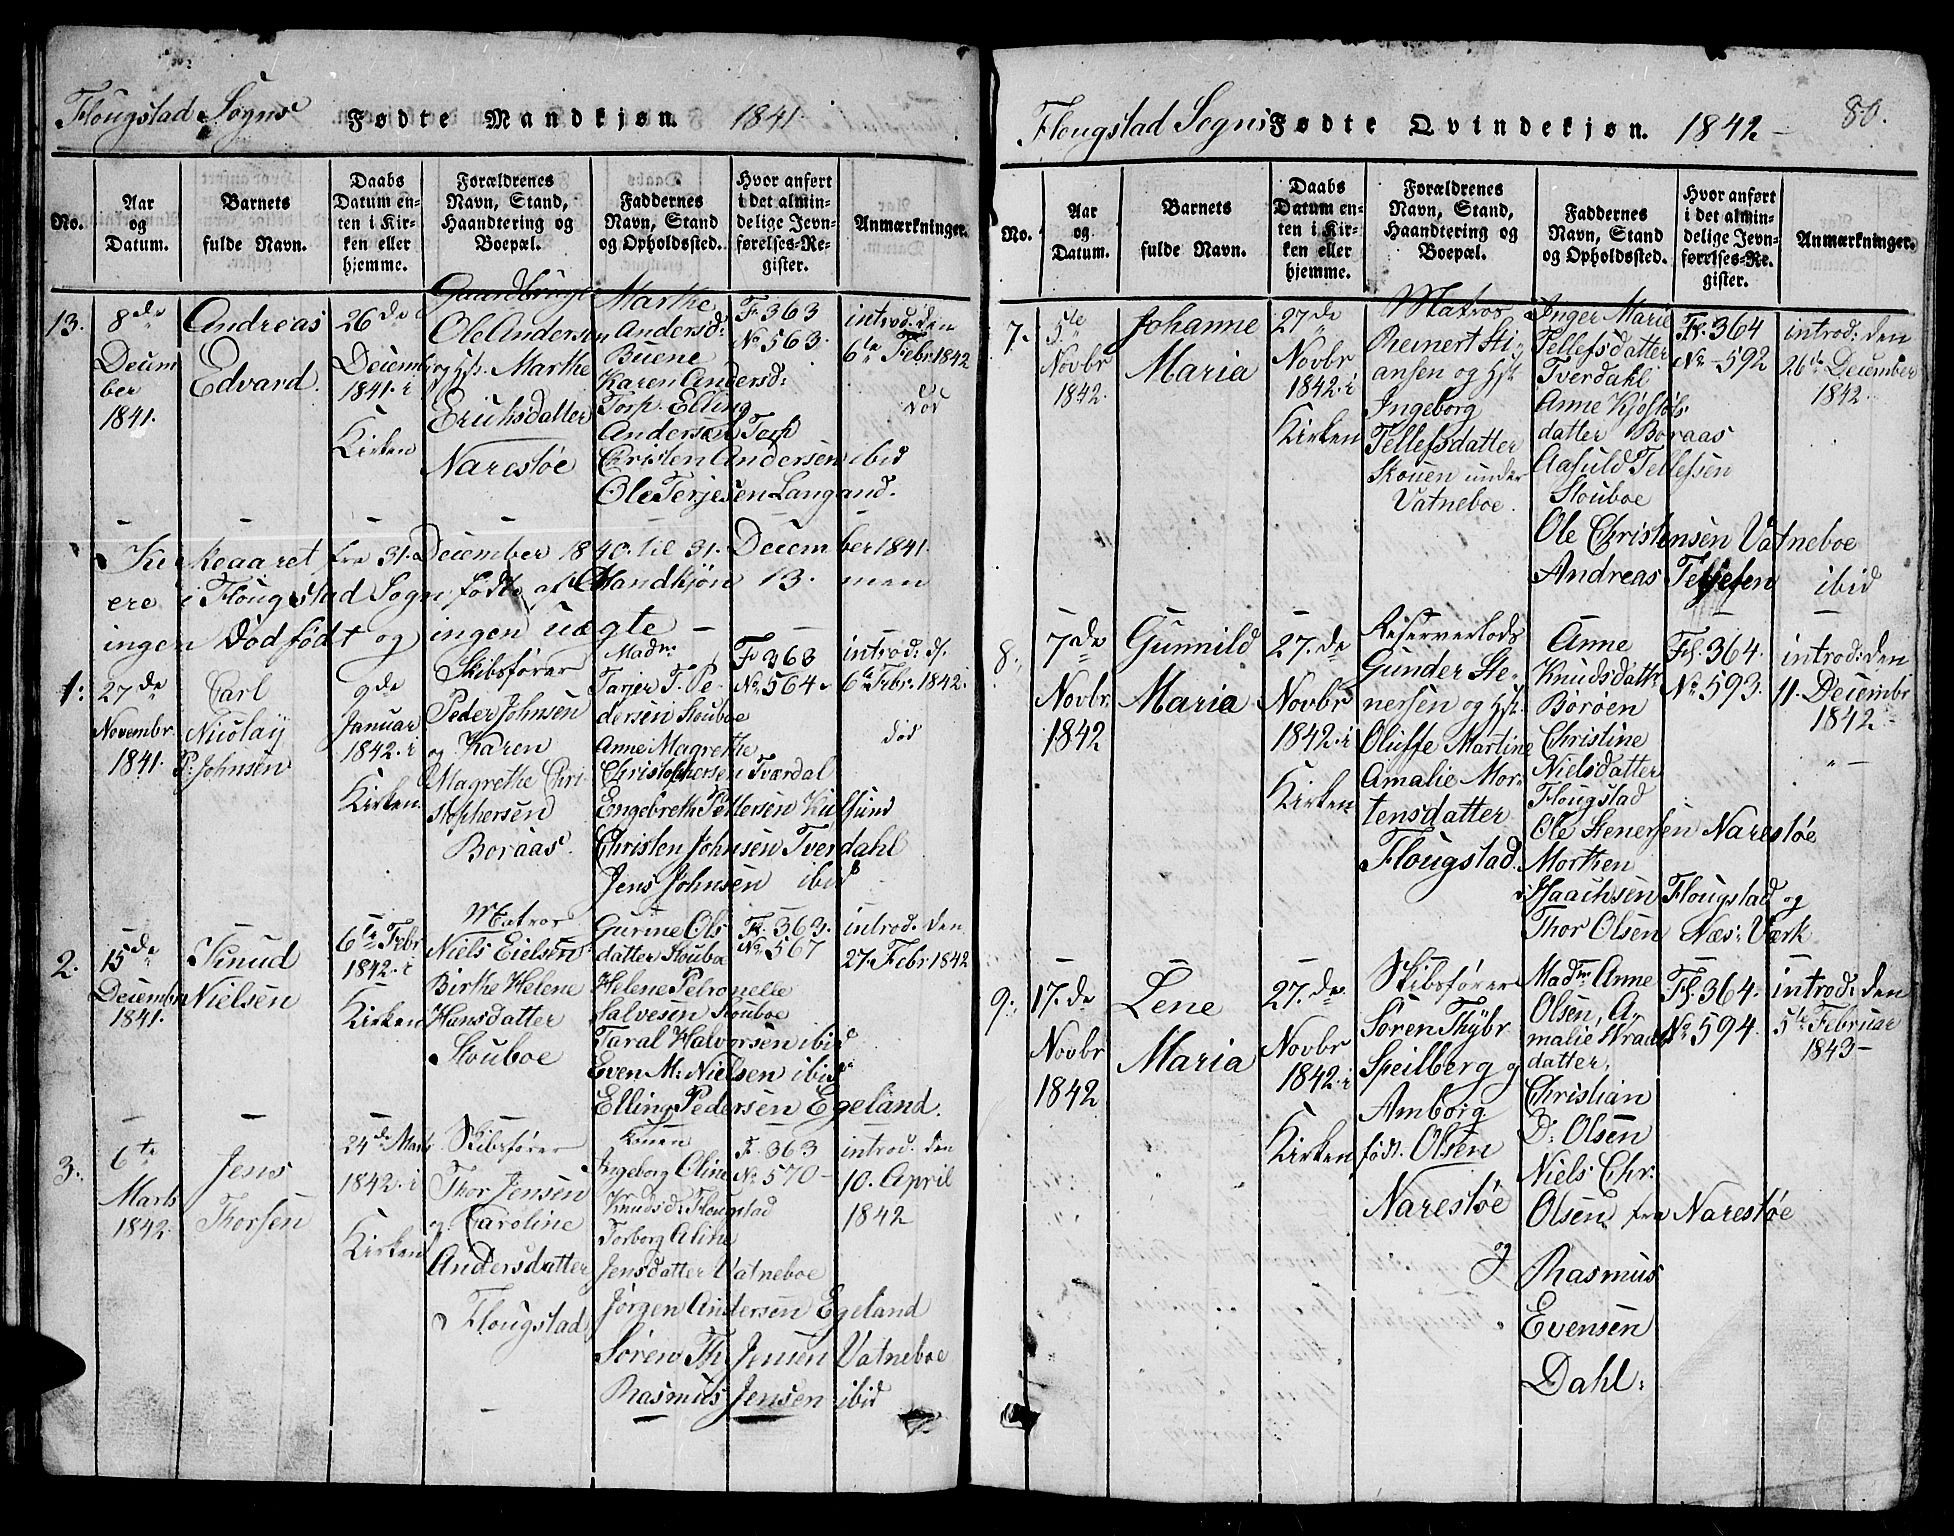 Flougstad Sogns Fødte Mandkjøn. 1841.
No.
Aar
og
Datum.
Barnets
fulde Navn.
Daabs
Datum en-
ten i Kir-
ken eller
hjemme.
Forældrenes
Navn, Stand,
Haandtering og
Boepæl.
Faddernes
Navn, Stand
og Opholdssted.
Hvor anført
i det almin-
delige Jevn-
førelses-Re-
gister.
Anmærkninger.
13.
8de
Decem
ber
1841.
Andreas
Edvard.
26de
Decemb
1841. i
Kirken
Gaardbruger
Ole Andersen
og Hst. Marthe
Erichsdatter
Narestøe
Marthe
Andersd:
Buene
Karen Andersd:
Torp. Elling
Andersen Torp
Christen Andersen ibid
Ole Terjesen Langand.
F 363
No 563.
introd: den
6te Febr 1842
død
I Kirkeaaret fra 31. December 1840 til 31. December 1841.
ere i Flougstad Sogn født af Mandkjøn 13. men
ingen Dødfødt og ingen uægte —
1:
27de
Novembr
1841.
Carl
Nicolay
P: Johnsen
9de
Januar
1842. i
Kirken.
Skibsfører
Peder Johnsen
og Karen
Magrethe Chri-
stophersen
Boraas.
Madm:
Tarjer T. Pe-
dersen Stouboe
Anne Magrethe
Christophersen Tværdal
Engebreth Pettersen Kilsund
Christen Johnsen Tverdahl
Jens Johnsen ibid
F 363
No 564.
introd: d.
6te Febr. 1842.
død
2.
15de
Decembr
1841.
Knud
Nielsen
6te Febr
1842. i
Kirken
Matros
Niels Eielsen
Birthe Helene
Hansdatter
Stouboe
Gurine Ols
datter Stouboe
Helene Petronelle
Salvesen Stouboe
Taral Halvorsen ibid
Even M: Nielsen ibid
Elling Pedersen Egeland.
F. 363.
No 567
introd: den
27. Febr 1842
3.
6te
Marts
1842.
Jens
Thorsen
24de Marts
1842. i
Kirken
Skibsfører
Thor Jensen
og Caroline
Andersdatter
Flougstad
Konen
Ingeborg Oline
Knudsd: Flougstad
Torborg Aline
Jensdatter Vatneboe
Jørgen Andersen Egeland
Søren Th. Jensen Vatneboe
Rasmus Jensen ibid
F. 363
No 570 –
introd. den
10. April
1842
Flougstad Sogns Fødte Qvindekjøn. 1842 – 80.
No.
Aar
og
Datum.
Barnets
fulde Navn.
Daabs
Datum en-
ten i Kir-
ken eller
hjemme.
Forældrenes
Navn, Stand,
Haandtering og
Boepæl.
Faddernes
Navn, Stand
og Opholdssted.
Hvor anført
i det almin-
delige Jevn-
førelses-Re-
gister.
Anmærkninger.
7.
5te
Novbr
1842.
Johanne
Maria
27de
Novbr
1842. i
Kirken
Matros
Reinert Sti-
ansen og Hst.
Ingeborg
Tellefsdatter
Skouen under
Vatneboe.
Inger Marie
Tellefsdatter
Tverdahl
Anne Kjøstols-
datter Boraas
Aasuld Tellefsen
Stouboe
Ole Christensen Vatneboe
Andreas Terjesen ibid
F. 364
No – 592
introd: den
26de December
1842.
8.
7de
Novbr.
1842
Gunnild
Maria
27. de
Novbr
1842. i
Kirken
Reserverlods
Gunder Ste-
nersen og Hst.
Oluffe Martine
Amalie Mor-
tensdatter
Flougstad.
Anne
Knudsdattr.
Børøen
Christine
Nielsdatter
Flougstad
Ole Stenersen Narestøe
Morthen
Isaachsen Flougstad og
Thor Olsen Næs: Værk
Fl. 364.
No 593.
introd: den
11. Decembr
1842 –
9.
17. de
Novbr
1842
Lene
Maria
27. de
Novbr
1842. i
Kirken
Skibsfører
Søren Thybr
Speilberg og
Amborg
født. Olsen
Narestøe
og
Madm Anne
Olsen, A-
malie
datter,
Christian
D: Olsen
Niels Chr.
Olsen fra Narestøe
Rasmus
Evensen
Dahl.
Fl. 364.
No 594.
introd: den
5te Februar
1843 –